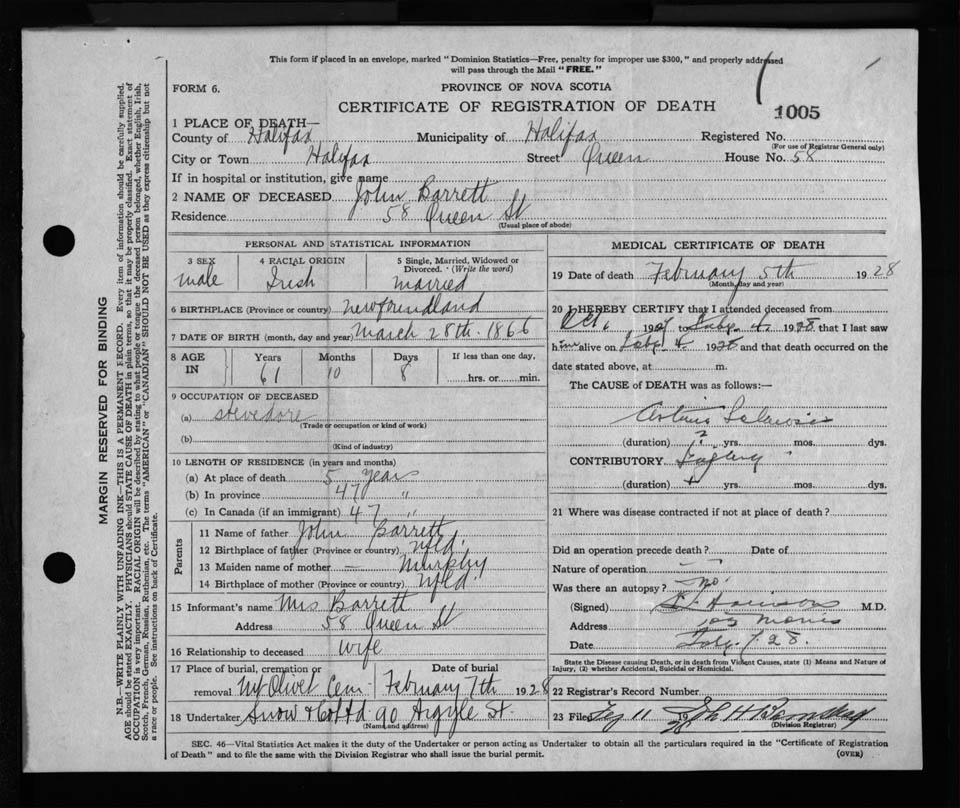 This form if placed in an envelope, marked "Dominion Statistics—Free, penalty for improper use $300," and properly addressed
will pass through the Mail "FREE."
FORM 6.
PROVINCE OF NOVA SCOTIA
CERTIFICATE OF REGISTRATION OF DEATH
1005
1 PLACE OF DEATH—
County of Halifax Municipality of Halifax Registered No.
(For use of Registrar General only)
City or Town Halifax Street Queen House No. 58
If in hospital or institution, give name
2 NAME OF DECEASED John Barrett
Residence 58 Queen St
(Usual place of abode)
PERSONAL AND STATISTICAL INFORMATION
3 SEX 4 RACIAL ORIGIN 5 Single, Married, Widowed or Divorced. (Write the word)
male Irish married
6 BIRTHPLACE (Province or country) newfoundland
7 DATE OF BIRTH (month, day and year) March 28th. 1866
8 AGE IN Years Months Days If less than one day,
61 10 8 hrs. or min.
9 OCCUPATION OF DECEASED
(a) stevedore
(Trade or occupation or kind of work)
(b)
(Kind of industry)
10 LENGTH OF RESIDENCE (in years and months)
(a) At place of death 5 years
(b) In province 47 "
(c) In Canada (if an immigrant) 47 "
Parents
11 Name of father John Barrett
12 Birthplace of father (Province or country) Nfld.
13 Maiden name of mother — Murphy
14 Birthplace of mother (Province or country) Nfld
15 Informant's name Mrs Barrett
Address 58 Queen St
16 Relationship to deceased wife
17 Place of burial, cremation or removal Mt Olivet Cem Date of burial February 7th 1928
18 Undertaker Snow & Co Ltd 90 Argyle St.
(Name and address)
MEDICAL CERTIFICATE OF DEATH
19 Date of death February 5th 1928
(Month, day and year)
20 I HEREBY CERTIFY that I attended deceased from
Oct 19 to Feby. 4. 1928 that I last saw
him alive on Feby. 4 1928 and that death occurred on the
date stated above, at m.
The CAUSE of DEATH was as follows:—
(duration) ? yrs. mos. dys.
CONTRIBUTORY
(duration) yrs. mos. dys.
21 Where was disease contracted if not at place of death?
Did an operation precede death? Date of
Nature of operation
Was there an autopsy? No.
(Signed) M.D.
Address Morris
Date Feby. 7. 28.
State the Disease causing Death, or in death from Violent Causes, state (1) Means and Nature of
Injury, (2) whether Accidental, Suicidal or Homicidal.
22 Registrar's Record Number
23 Filed 11 19
(Division Registrar)
SEC. 46—Vital Statistics Act makes it the duty of the Undertaker or person acting as Undertaker to obtain all the particulars required in the "Certificate of Registration
of Death" and to file the same with the Division Registrar who shall issue the burial permit.
(OVER)
MARGIN RESERVED FOR BINDING
N.B.—WRITE PLAINLY WITH UNFADING INK—THIS IS A PERMANENT RECORD. Every item of information should be carefully supplied.
AGE should be stated EXACTLY. PHYSICIANS should STATE CAUSE OF DEATH in plain terms, so that it may be properly classified. Exact statement of
OCCUPATION is very important. RACIAL ORIGIN will be described by stating to what people or tongue the deceased person belonged, whether English, Irish,
Scotch, French, German, Russian, Ruthenian, etc. The terms "AMERICAN" or "CANADIAN" SHOULD NOT BE USED as they express citizenship but not
a race or people. See instructions on back of Certificate.